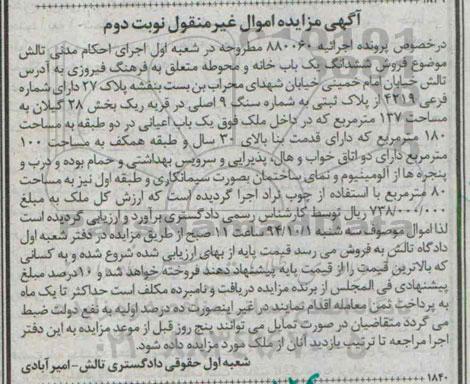 آگهی مزایده اموال غیرمنقول نوبت دوم
درخصوص پرونده اجرائیه ۸۸۰۰۶۰ مطروحه در شعبه اول اجرای احکام مدنی تالش
موضوع فروش ششدانگ یک باب خانه و محوطه متعلق به فرهنگ فیروزی به آدرس
تالش خیابان امام خمینی خیابان شهدای محراب بن بست بنفشه پلاک ۲۷ دارای شماره
فرعی ۴۲۱۹ از پلاک ثبتی به شماره سنگ ۹ اصلی در قریه ریک بخش ۲۸ گیلان به
مساحت ۱۳۷ مترمربع که در داخل ملک فوق یک باب اعیانی در دو طبقه به مساحت
۱۸۰ مترمربع که دارای قدمت بنا بالای ۳۰ سال و طبقه همکف به مساحت ۱۰۰
مترمربع دارای دو اتاق خواب و هال، پذیرایی و سرویس بهداشتی و حمام بوده و درب و
پنجره ها از آلومینیوم و نمای ساختمان بصورت سیمانکاری و طبقه اول نیز به مساحت
۸۰ مترمربع با استفاده از چوب نراد اجرا گردیده است که ارزش کل ملک به مبلغ
۷۳۸/۰۰۰/۰۰۰ ریال توسط کارشناس رسمی دادگستری برآورد و ارزیابی گردیده است
لذا اموال موصوف سه شنبه ۹۴/۱۰/۸ ساعت ۱۱ صبح از طریق مزایده در دفتر شعبه اول
دادگاه تالش به فروش می رسد قیمت پایه از بهای ارزیابی شده شروع شده و به کسانی
که بالاترین قیمت را از قیمت پایه پیشنهاد دهند فروخته خواهد شد و ۱۰درصد مبلغ
پیشنهادی فی المجلس از برنده مزایده دریافت و نامبرده مکلف است حداکثر تا یک ماه
به پرداخت ثمن معامله اقدام نمایند در غیر اینصورت ده درصد اولیه به نفع دولت ضبط
می گردد متقاضیان در صورت تمایل می توانند پنج روز قبل از موعد مزایده به این دفتر
اجرا مراجعه تا ترتیب بازدید آنان از ملک مورد مزایده داده شود.
شعبه اول حقوقی دادگستری تالش- امیرآبادی
۱۸۴۰